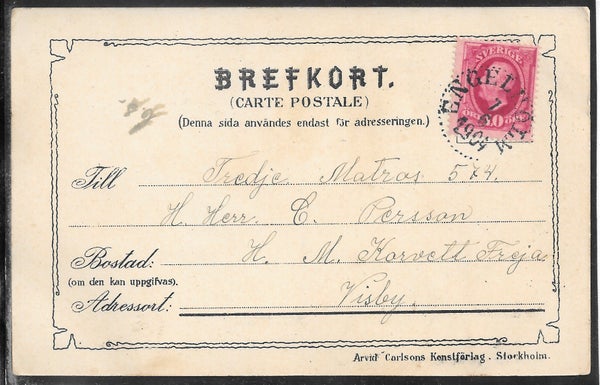 BREFKORT.
(CARTE POSTALE)
(Denna sida användes endast för adresseringen.)
SVERIGE
ENGELHOLM
7
6
1904
10
Till Tredje Matros 574.
H. Herr C. Persson
Bostad: H. M. Korvett Freja
(om den kan uppgifvas).
Adressort: Visby.
Arvid Carlsons Konstförlag, Stockholm.